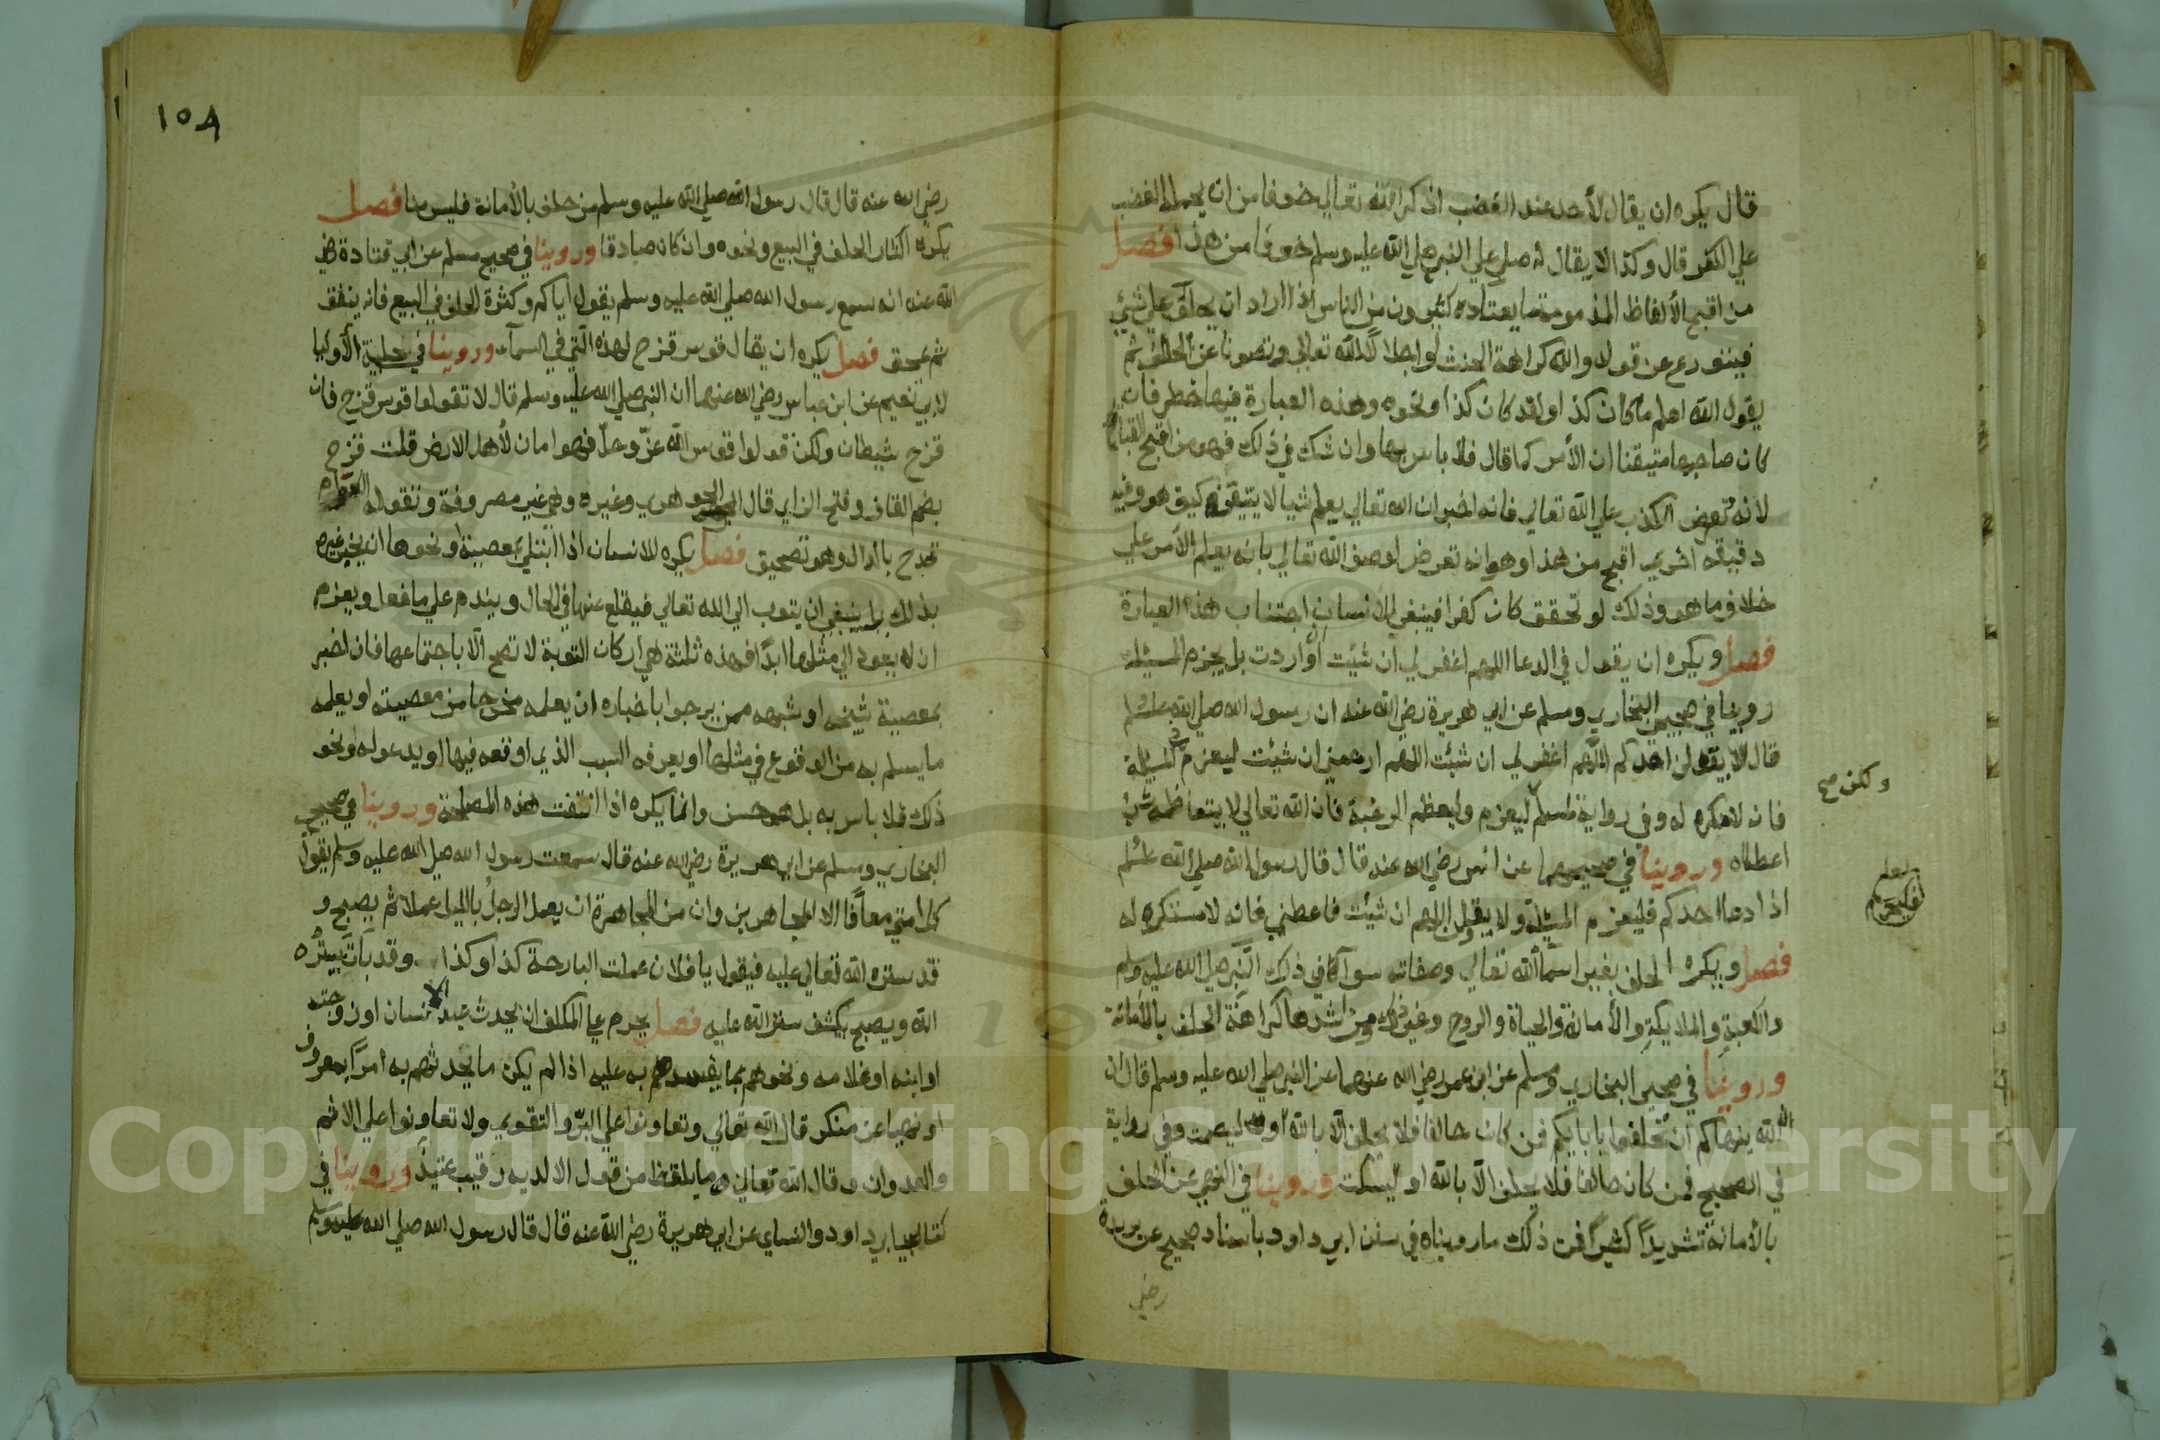 قال يكره ان يقال لأحد عند الغضب اذكر الله تعالي خوفا من ان يحمله الغضب
علي الكفر قال وكذا لا يقال له صلي علي النبي صلي الله عليه وسلم خوفا من هذا فصل
من اقبح الألفاظ المذمومة ما يعتاده كثيرون من الناس اذا اراد ان يحلف علي شئ
فيتورع عن قوله والله كراهة الحنث او اجلالا لله تعالي وتصونا عن الحلف ثم
يقول الله اعلم ما كان كذا او لقد كان كذا ونحوه وهذه العبارة فيها خطر فان
كان صاحبها متيقنا ان الأمر كما قال فلا باس بها وان شك في ذلك فهو من اقبح القبائح
لانه تعرض الكذب علي الله تعالي فانه اخبر ان الله تعالي يعلم شيا لا يتيقن كيف هو وفيه
دقيقة اخري اقبح من هذا وهو انه تعرض لوصف الله تعالي بانه يعلم الأمر علي
خلاف ما هو وذلك لو تحقق كان كفرا فينبغي للانسان اجتناب هذه العبارة
فصل ويكره ان يقول في الدعا اللهم اغفر لي ان شئت او اردت بل يجزم المسئلة
روينا في صحيحي البخاري ومسلم عن ابي هريرة رضي الله عنه ان رسول الله صلي الله عليه وسلم
قال لا يقولن احدكم اللهم اغفر لي ان شئت اللهم ارحمني ان شئت ليعزم المسئلة
فانه لا مكره له وفي رواية لمسلم ليعزم وليعظم الرغبة فان الله تعالي لا يتعاظمه شئ
اعطاه وروينا في صحيحيهما عن انس رضي الله عنه قال قال رسول الله صلي الله عليه وسلم
اذا دعا احدكم فليعزم المسئلة ولا يقولن اللهم ان شئت فاعطني فانه لا مستكره له
فصل ويكره الحلف بغير اسماء الله تعالي وصفاته سواء في ذلك النبي صلي الله عليه وسلم
والكعبة والملايكة والأمانة والحياة والروح وغير ذلك ومن اشدها كراهة الحلف بالأمانة
وروينا في صحيحي البخاري ومسلم عن ابن عمر رضي الله عنهما عن النبي صلي الله عليه وسلم قال ان
الله ينهاكم ان تحلفوا بابايكم فمن كان حالفا فلا يحلف الا بالله او ليصمت وفي رواية
في الصحيح فمن كان حالفا فلا يحلف الا بالله او ليسكت وروينا في النهي عن الحلف
بالأمانة تشديدا كثيرا فمن ذلك ما رويناه في سنن ابي داود باسناد صحيح عن بريدة
رضي
ولكن صح
١٥٨
رضي الله عنه قال قال رسول الله صلي الله عليه وسلم من حلف بالأمانة فليس منا فصل
يكره اكثار الحلف في البيع ونحوه وان كان صادقا وروينا في صحيح مسلم عن ابي قتادة رضي
الله عنه انه سمع رسول الله صلي الله عليه وسلم يقول اياكم وكثرة الحلف في البيع فانه ينفق
ثم يمحق فصل يكره ان يقال قوس قزح لهذه التي في السماء وروينا في حلية الأوليا
لابي نعيم عن ابن عباس رضي الله عنهما ان النبي صلي الله عليه وسلم قال لا تقولوا قوس قزح فان
قزح شيطان ولكن قولوا قوس الله عز وجل فهو امان لأهل الارض قلت قزح
بضم القاف وفتح الزاي قال الجوهري وغيره وهي غير مصروفة وتقوله العوام
قدح بالدال وهو تصحيف فصل يكره للانسان اذا ابتلي بمعصية او نحوها ان يخبر غيره
بذلك بل ينبغي ان يتوب الي الله تعالي فيقلع عنها في الحال ويندم علي ما فعل ويعزم
ان لا يعود الي مثلها ابدا فهذه ثلثة هي اركان التوبة لا تصح الا باجتماعها فان اخبر
بمعصية شيخه او شبهه ممن يرجوا باخباره ان يعلمه مخرجا من معصيته او يعلمه
ما يسلم به من الوقوع في مثلها او يعرفه السبب الذي اوقعه فيها او يدعو له او نحو
ذلك فلا باس به بل هو حسن وانما يكره اذا انتفت هذه المصلحة وروينا في صحيحي
البخاري ومسلم عن ابي هريرة رضي الله عنه قال سمعت رسول الله صلي الله عليه وسلم يقول
كل امتي معافا الا المجاهرين وان من المجاهرة ان يعمل الرجل بالليل عملا ثم يصبح و
قد ستره الله تعالي عليه فيقول يا فلان عملت البارحة كذا وكذا وقد بات يستره
الله ويصبح يكشف ستر الله عليه فصل يحرم علي المكلف ان يحدث عبد الانسان او زوجته
او ابنه او غلامه ونحوهم بما يفسدهم به عليه اذا لم يكن ما يحدثهم به امرا بمعروف
او نهيا عن منكر قال الله تعالي وتعاونوا علي البر والتقوي ولا تعاونوا علي الاثم
والعدوان وقال الله تعالي ما يلفظ من قول الا لديه رقيب عتيد وروينا في
كتابي ابي داود والنساي عن ابي هريرة رضي الله عنه قال قال رسول الله صلي الله عليه وسلم
Copyright © King Saud University